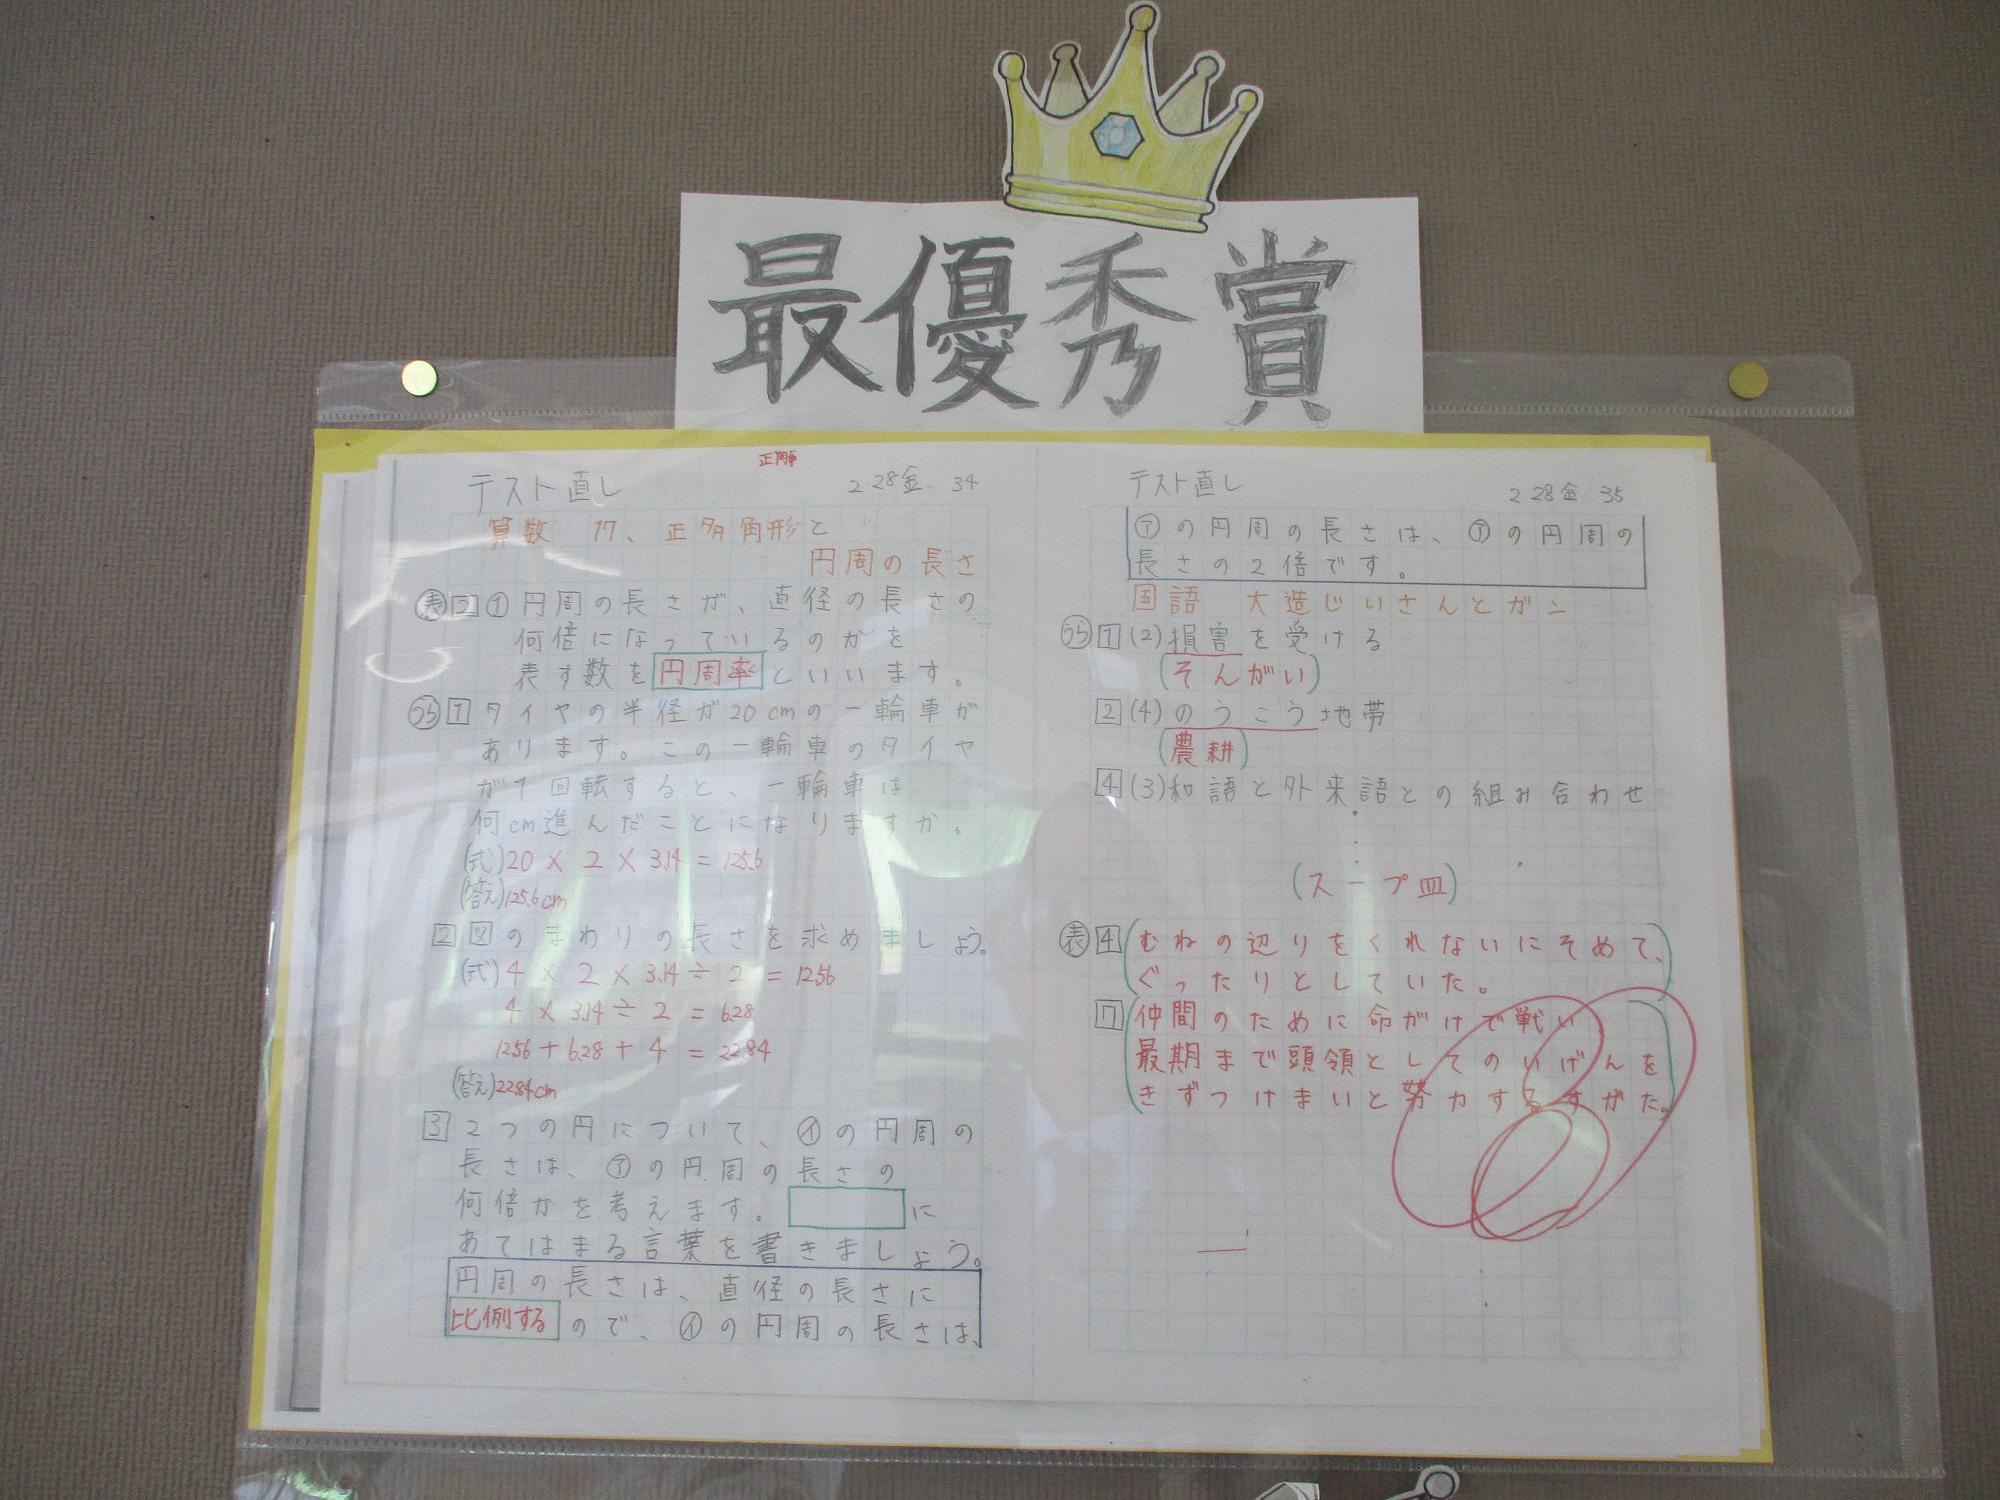 最優秀賞
テスト直し 2.28金 34
算数 17、正多角形と
円周の長さ
表 2 ① 円周の長さが、直径の長さの
何倍になっているのかを
表す数を円周率といいます。
うら 1 タイヤの半径が20cmの一輪車が
あります。この一輪車のタイヤ
が1回転すると、一輪車は
何cm進んだことになりますか。
(式)20×2×3.14=125.6
(答え)125.6cm
2 図のまわりの長さを求めましょう。
(式)4×2×3.14÷2=12.56
4×3.14÷2=6.28
12.56+6.28+4=22.84
(答え)22.84cm
3 2つの円について、㋑の円周の
長さは、㋐の円周の長さの
何倍かを考えます。 に
あてはまる言葉を書きましょう。
円周の長さは、直径の長さに
比例するので、㋑の円周の長さは、
テスト直し 2.28金 35
㋐の円周の長さは、㋐の円周の
長さの2倍です。
国語 大造じいさんとガン
うら 1 (2)損害を受ける
(そんがい)
2 (4)のうこう地帯
(農耕)
4 (3)和語と外来語との組み合わせ
(スープ皿)
表 4 (むねの辺りをくれないにそめて、
ぐったりとしていた。)
7 (仲間のために命がけで戦い
最期まで頭領としてのいげんを
きずつけまいと努力するすがた。)